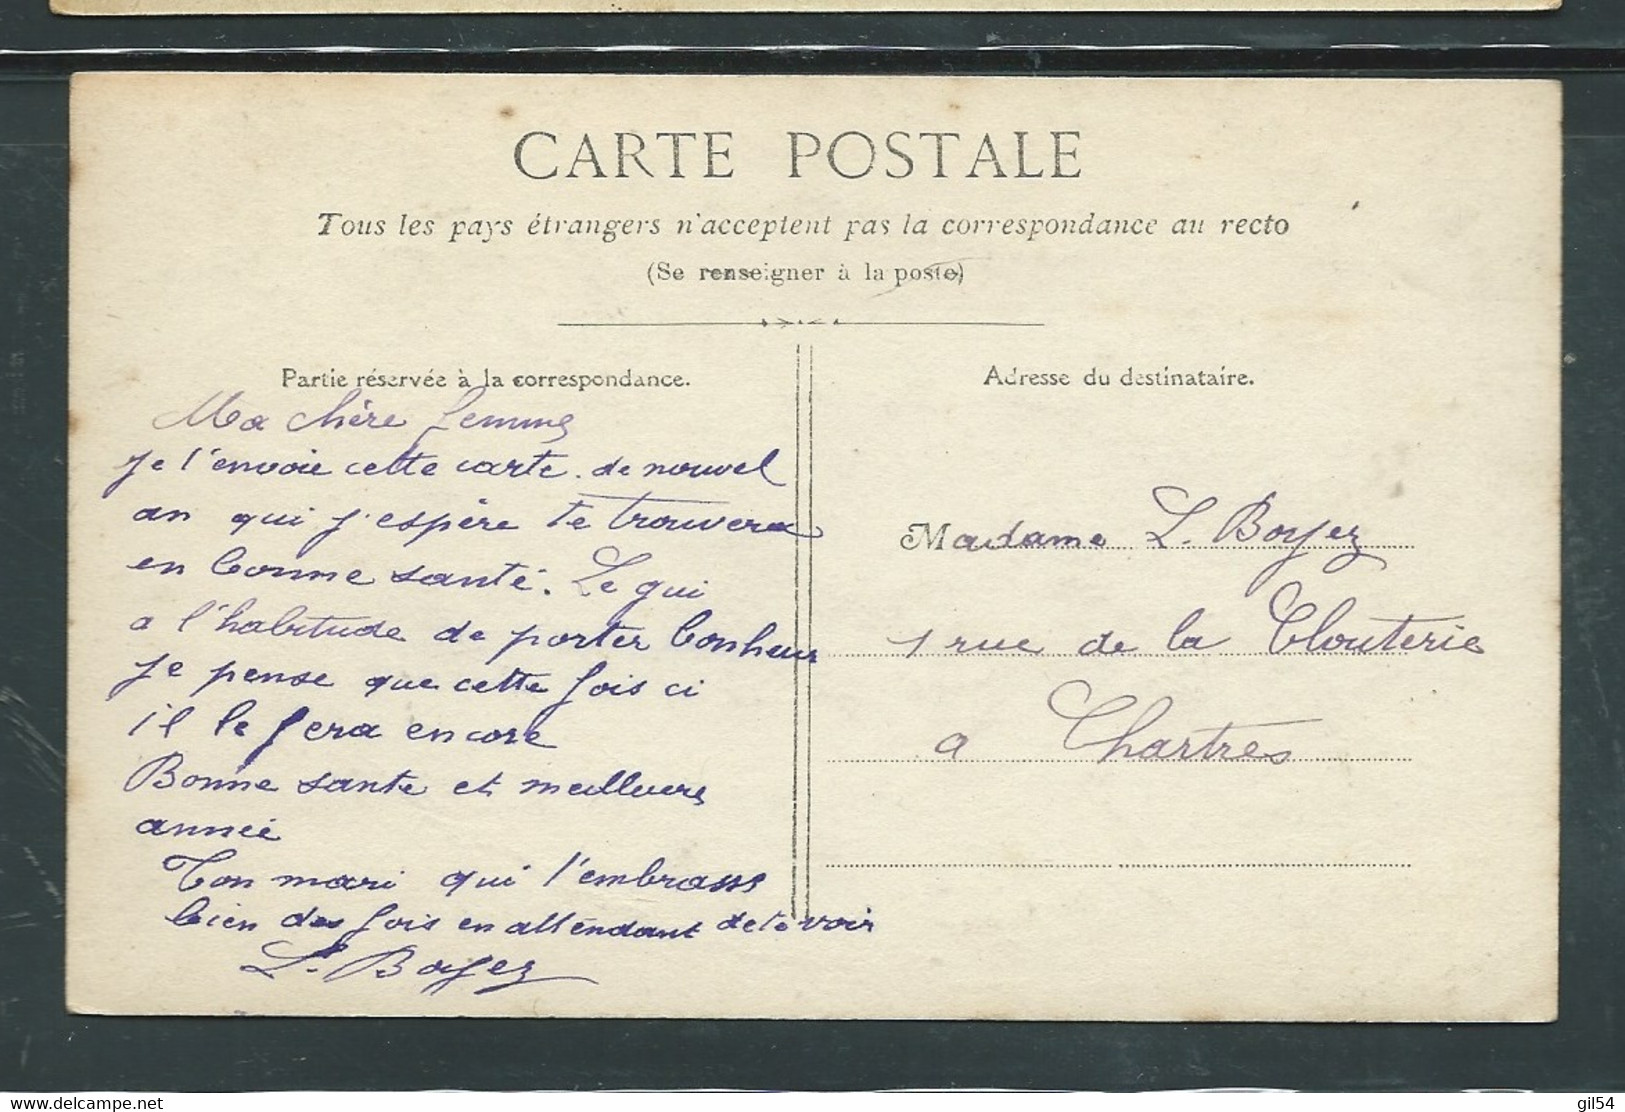 CARTE POSTALE
Tous les pays étrangers n'acceptent pas la correspondance au recto
(Se renseigner à la poste)
Partie réservée à la correspondance.
Adresse du destinataire.
Ma chère femme
je t'envoie cette carte de nouvel
an qui j'espère te trouvera
en bonne santé. Le gui
a l'habitude de porter bonheur
je pense que cette fois ci
il le fera encore
Bonne sante et meilleure
année
Ton mari qui t'embrasse
bien des fois en attendant de te voir
L. Boyez
Madame L. Boyez
1 rue de la Clouterie
a Chartres
www.delcampe.net
gil54